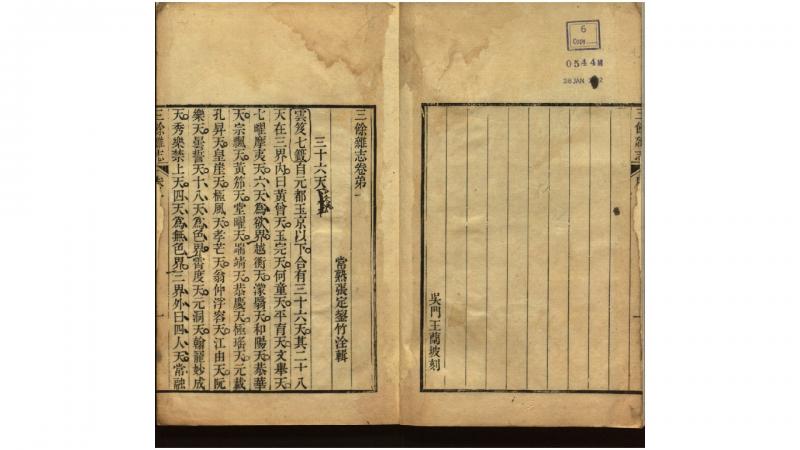 6
Copy
0544
28 JAN
三餘雜志
吳門王蘭坡刻
三餘雜志卷第一
常熟張定鋆竹淦輯
三十六天
雲笈七籤自元都玉京以下合有三十六天其二十八
天在三界內曰黃曾天玉完天何童天平育天文舉天
七曜摩夷天六天為欲界越衡天濛翳天和陽天恭華
天宗飄天黃笳天堂曜天端靖天恭慶天極瑤天元載
孔昇天皇崖天極風天孝芒天翁仲浮容天江由天阮
樂天曇誓天十八天為色界霄度天元洞天翰寵妙成
天秀樂禁上天四天為無色界三界外曰四人天常融
三餘雜志